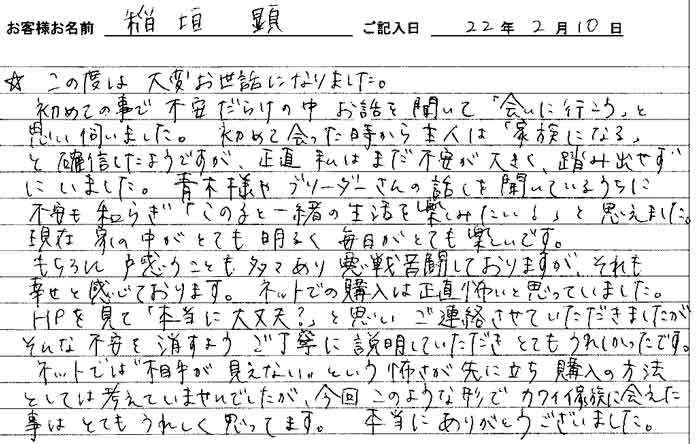 お客様お名前 稲垣 顕 ご記入日 22年 2月 10日
☆ この度は 大変お世話になりました。
初めての事で 不安だらけの中 お話を聞いて「会いに行こう」と
思い伺いました。 初めて会った時から主人は「家族になる」
と確信したようですが、正直 私はまだ不安が大きく、踏み出せず
にいました。 青木様や ブリーダーさんの話しを聞いているうちに
不安も和らぎ「この子と一緒の生活を楽しみたい!」と思えました。
現在 家の中がとても明るく 毎日がとても楽しいです。
もちろん 戸惑うことも多々あり 悪戦苦闘しておりますが、それも
幸せと感じております。 ネットでの購入は正直怖いと思っていました。
HPを見て「本当に大丈夫?」と思い ご連絡させていただきましたが
そんな不安を消すよう ご丁寧に説明していただき とてもうれしかったです。
ネットでは"相手が見えない"という怖さが先に立ち 購入の方法
としては考えていませんでしたが、今回 このような形で カワイイ家族に会えた
事は とてもうれしく思ってます。 本当にありがとうございました。